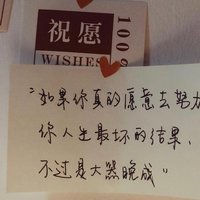 祝愿
WISHES
100%
“如果你真的愿意去努力
你人生最坏的结果、
不过是大器晚成”